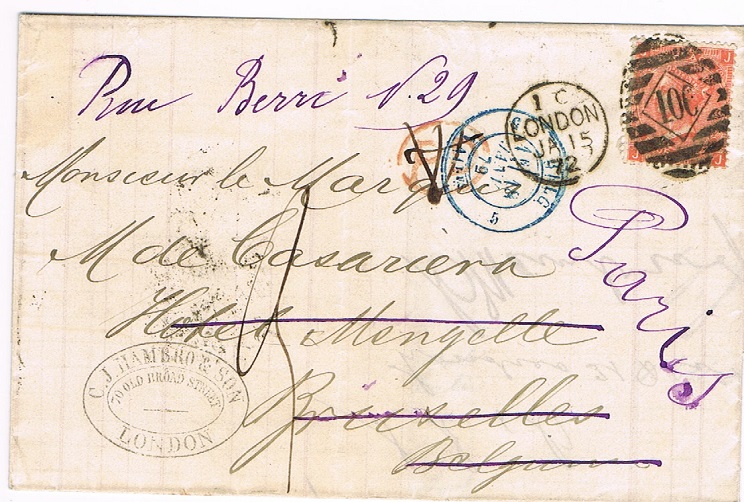 Rue Berri N. 29
1 C
LONDON
JA 15
72
106
Monsieur le Marquis
M de Casariera
Paris
Hotel Mengelle
Bruxelles
Belgium
C. J. HAMBRO & SON
70 OLD BROAD STREET
LONDON